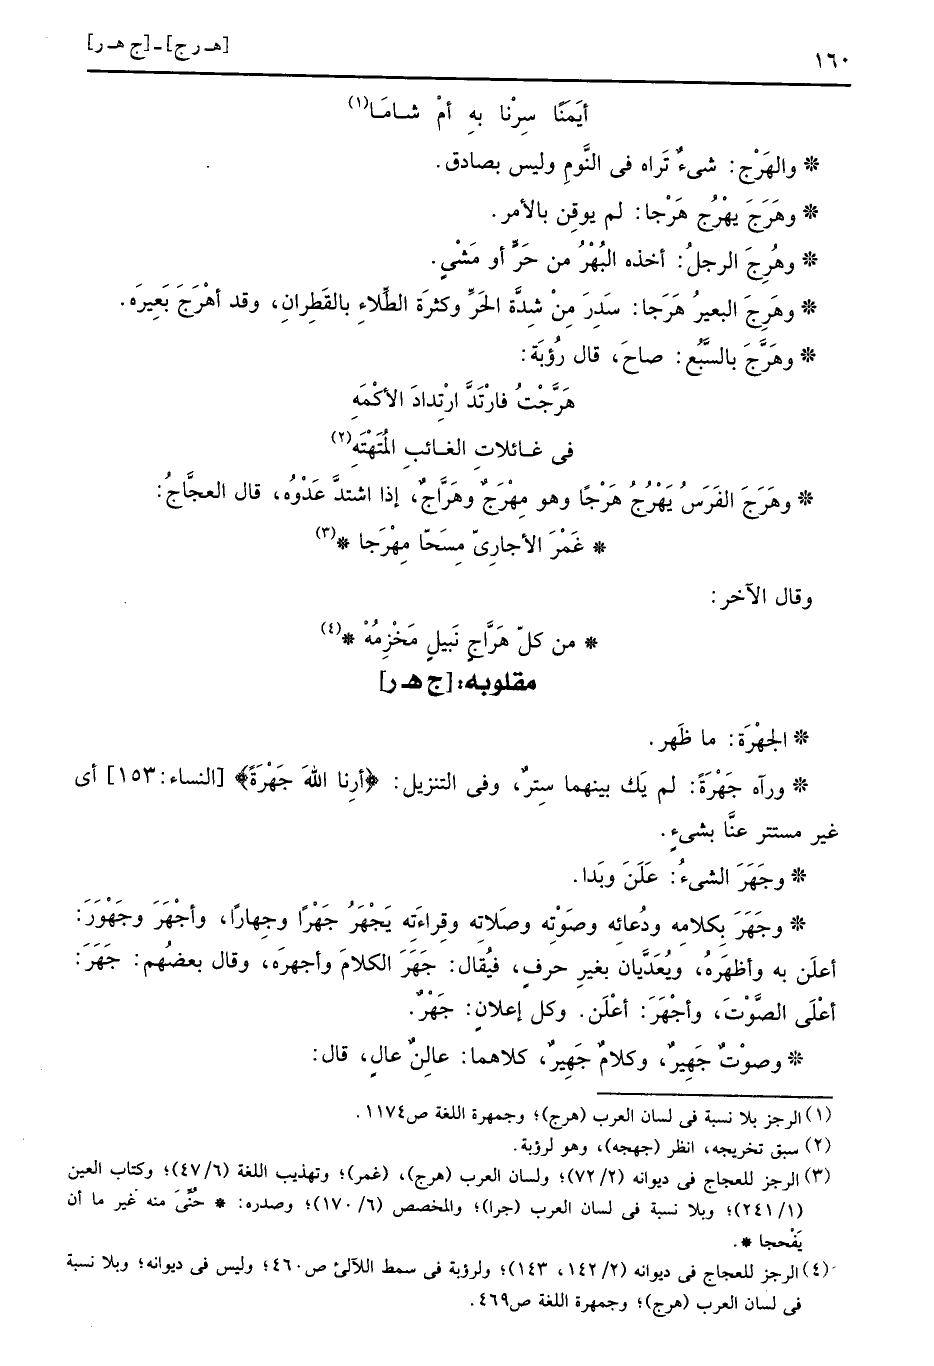 ١٦٠
[هـ ر ج] ـ [ج هـ ر]
أيَمَنًا سِرْنا بِهِ أمْ شـامَـا(١)
* والهَرْج: شىءٌ تَراه فى النَّومِ وليس بصادق.
* وهَرَجَ يهْرُج هَرْجا: لم يوقِن بالأمر.
* وهُرِجَ الرجلُ: أخذه البُهْرُ من حَرٍّ أو مَشْىٍ.
* وهَرِجَ البعيرُ هَرَجا: سَدِرَ مِنْ شدَّة الحَرِّ وكثرَة الطِّلاءِ بالقَطِران، وقد أهْرَجَ بَعِيرَه.
* وهَرَّجَ بالسَّبُع: صاحَ، قال رُؤبَة:
هَرَّجْتُ فارْتَدَّ ارْتِدادَ الأكْمَهِ
فى غـائلاتِ الغـائب المُتَهْتَهِ(٢)
* وهَرَجَ الفَرَسُ يَهْرُجُ هَرْجًا وهو مِهْرَجٌ وهَرَّاجٌ، إذا اشتدَّ عَدْوُه، قال العجَّاجُ:
* غَمْرَ الأجارىّ مِسَحّا مِهْرَجا *(٣)
وقال الآخر:
* من كلّ هَرَّاجٍ نَبيلٍ مَحْزِمُهْ *(٤)
مقلوبه: [ج هـ ر]
* الجَهْرَة: ما ظَهر.
* ورآه جَهْرَةً: لم يَك بينهما سِترٌ، وفى التنزيل: ﴿أرِنا اللهَ جَهْرَةً﴾ [النساء: ١٥٣] أى
غير مستتر عنَّا بشىءٍ.
* وجَهَرَ الشىءُ: عَلَنَ وبَدا.
* وجَهَرَ بكلامه ودُعائه وصَوْتِه وصلَاتِه وقِراءَتِه يَجْهَرُ جَهْرًا وجِهارًا، وأجْهَرَ وجَهْوَرَ:
أعلَن به وأظهَرهُ، ويُعَدَّيان بغيرِ حرفٍ، فيُقال: جَهَرَ الكلامَ وأجهرَه، وقال بعضُهم: جَهَرَ:
أعْلَى الصَّوْتَ، وأجْهَرَ: أعْلَن. وكل إعلانٍ: جَهْرٌ.
* وصوْتٌ جَهِيرٌ، وكلامٌ جَهِيرٌ، كلاهما: عالِنٌ عالٍ، قال:
(١) الرجز بلا نسبة فى لسان العرب (هرج)؛ وجمهرة اللغة ص١١٧٤.
(٢) سبق تخريجه، انظر (جهجه)، وهو لرؤبة.
(٣) الرجز للعجاج فى ديوانه (٧٢/٢)؛ ولسان العرب (هرج)، (غمر)؛ وتهذيب اللغة (٤٧/٦)؛ وكتاب العين
(٢٤١/١)؛ وبلا نسبة فى لسان العرب (جرا)؛ والمخصص (١٧٠/٦)؛ وصدره: * حُنِّىَ منه غير ما أن
يَفْحجا *.
(٤) الرجز للعجاج فى ديوانه (١٤٢/٢، ١٤٣)؛ ولرؤبة فى سمط اللآلئ ص٤٦٠؛ وليس فى ديوانه؛ وبلا نسبة
فى لسان العرب (هرج)؛ وجمهرة اللغة ص٤٦٩.